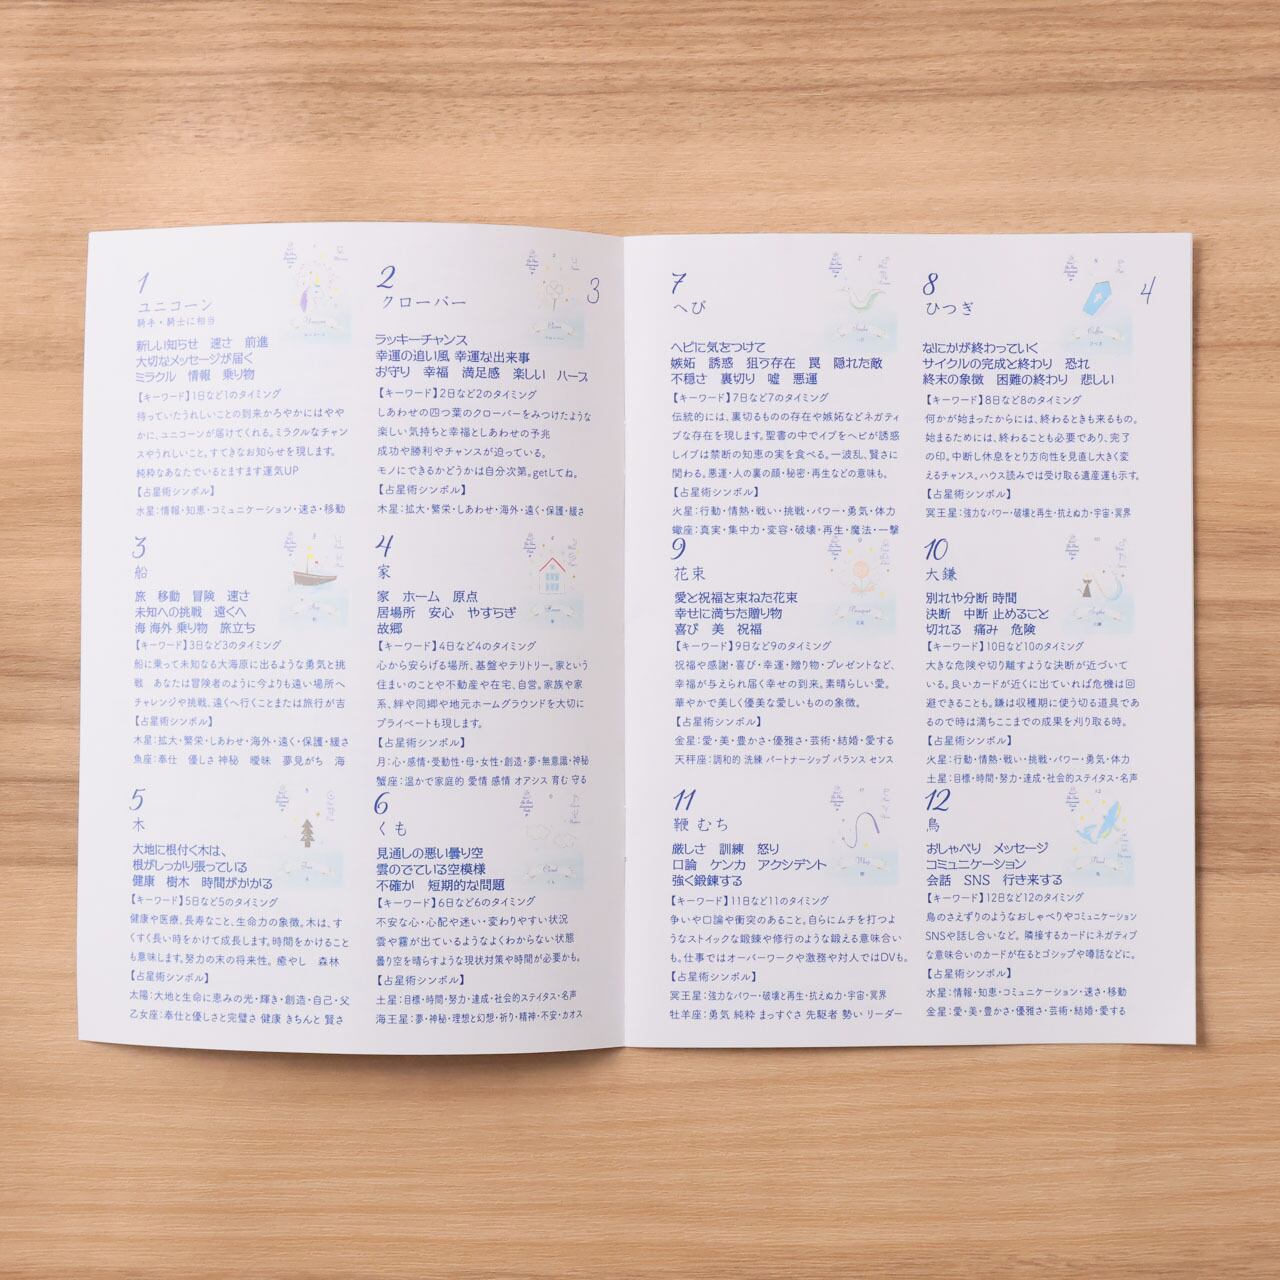 1
ユニコーン
騎手・騎士に相当
新しい知らせ 速さ 前進
大切なメッセージが届く
ミラクル 情報 乗り物
【キーワード】1日など1のタイミング
待っていたうれしいことの到来かろやかにはやや
かに、ユニコーンが届けてくれる。ミラクルなチャン
スやうれしいこと。すてきなお知らせを現します。
純粋なあなたでいるとますます運気UP
【占星術シンボル】
水星:情報・知恵・コミュニケーション・速さ・移動
2
クローバー
3
ラッキーチャンス
幸運の追い風 幸運な出来事
お守り 幸福 満足感 楽しい ハーブ
【キーワード】2日など2のタイミング
しあわせの四つ葉のクローバーをみつけたような
楽しい気持ちと幸福としあわせの予兆
成功や勝利やチャンスが迫っている。
モノにできるかどうかは自分次第。getしてね。
【占星術シンボル】
木星:拡大・繁栄・しあわせ・海外・遠く・保護・緩さ
3
船
旅 移動 冒険 速さ
未知への挑戦 遠くへ
海 海外 乗り物 旅立ち
【キーワード】3日など3のタイミング
船に乗って未知なる大海原に出るような勇気と挑
戦 あなたは冒険者のように今よりも遠い場所へ
チャレンジや挑戦、遠くへ行くことまたは旅行が吉
【占星術シンボル】
木星:拡大・繁栄・しあわせ・海外・遠く・保護・緩さ
魚座:奉仕 優しさ 神秘 曖昧 夢見がち 海
4
家
家 ホーム 原点
居場所 安心 やすらぎ
故郷
【キーワード】4日など4のタイミング
心から安らげる場所、基盤やテリトリー。家という
住まいのことや不動産や在宅、自営。家族や家
系、絆や同郷や地元ホームグラウンドを大切に
プライベートも現します。
【占星術シンボル】
月:心・感情・受動性・母・女性・創造・夢・無意識・神秘
蟹座:温かで家庭的 愛情 感情 オアシス 育む 守る
5
木
大地に根付く木は、
根がしっかり張っている
健康 樹木 時間がかかる
【キーワード】5日など5のタイミング
健康や医療、長寿なこと、生命力の象徴。木は、す
くすく長い時をかけて成長します。時間をかけること
も意味します。努力の末の将来性。癒やし 森林
【占星術シンボル】
太陽:大地と生命に恵みの光・輝き・創造・自己・父
乙女座:奉仕と優しさと完璧さ 健康 きちんと 賢さ
6
くも
見通しの悪い曇り空
雲のでている空模様
不確か 短期的な問題
【キーワード】6日など6のタイミング
不安な心・心配や迷い・変わりやすい状況
雲や霧が出ているようなよくわからない状態
曇り空を晴らすような現状対策や時間が必要かも。
【占星術シンボル】
土星:目標・時間・努力・達成・社会的ステイタス・名声
海王星:夢・神秘・理想と幻想・祈り・精神・不安・カオス
7
へび
ヘビに気をつけて
嫉妬 誘惑 狙う存在 罠 隠れた敵
不穏さ 裏切り 嘘 悪運
【キーワード】7日など7のタイミング
伝統的には、裏切るものの存在や嫉妬などネガティ
ブな存在を現します。聖書の中でイブをヘビが誘惑
しイブは禁断の知恵の実を食べる。一波乱、賢さに
関わる。悪運・人の裏の顔・秘密・再生などの意味も。
【占星術シンボル】
火星:行動・情熱・戦い・挑戦・パワー・勇気・体力
蠍座:真実・集中力・変容・破壊・再生・魔法・一撃
8
ひつぎ
4
なにかが終わっていく
サイクルの完成と終わり 恐れ
終末の象徴 困難の終わり 悲しい
【キーワード】8日など8のタイミング
何かが始まったからには、終わるときも来るもの。
始まるためには、終わることも必要であり、完了
の印。中断し休息をとり方向性を見直し大きく変
えるチャンス。ハウス読みでは受け取る遺産運も示す。
【占星術シンボル】
冥王星:強力なパワー・破壊と再生・抗えぬ力・宇宙・冥界
9
花束
愛と祝福を束ねた花束
幸せに満ちた贈り物
喜び 美 祝福
【キーワード】9日など9のタイミング
祝福や感謝・喜び・幸運・贈り物・プレゼントなど、
幸福が与えられ届く幸せの到来。素晴らしい愛。
華やかで美しく優美な愛しいものの象徴。
【占星術シンボル】
金星:愛・美・豊かさ・優雅さ・芸術・結婚・愛する
天秤座:調和的 洗練 パートナーシップ バランス センス
10
大鎌
別れや分断 時間
決断 中断 止めること
切れる 痛み 危険
【キーワード】10日など10のタイミング
大きな危険や切り離すような決断が近づいて
いる。良いカードが近くに出ていれば危機は回
避できることも。鎌は収穫期に使う切る道具であ
るので時は満ちここまでの成果を刈り取る時。
【占星術シンボル】
火星:行動・情熱・戦い・挑戦・パワー・勇気・体力
土星:目標・時間・努力・達成・社会的ステイタス・名声
11
鞭 むち
厳しさ 訓練 怒り
口論 ケンカ アクシデント
強く鍛錬する
【キーワード】11日など11のタイミング
争いや口論や衝突のあること。自らにムチを打つよ
うなストイックな鍛錬や修行のような鍛える意味合い
も。仕事ではオーバーワークや激務や対人ではDVも。
【占星術シンボル】
冥王星:強力なパワー・破壊と再生・抗えぬ力・宇宙・冥界
牡羊座:勇気 純粋 まっすぐさ 先駆者 勢い リーダー
12
鳥
おしゃべり メッセージ
コミュニケーション
会話 SNS 行き来する
【キーワード】12日など12のタイミング
鳥のさえずりのようなおしゃべりやコミュニケーション
SNSや話し合いなど。隣接するカードにネガティブ
な意味合いのカードが在るとゴシップや噂話などに。
【占星術シンボル】
水星:情報・知恵・コミュニケーション・速さ・移動
金星:愛・美・豊かさ・優雅さ・芸術・結婚・愛する